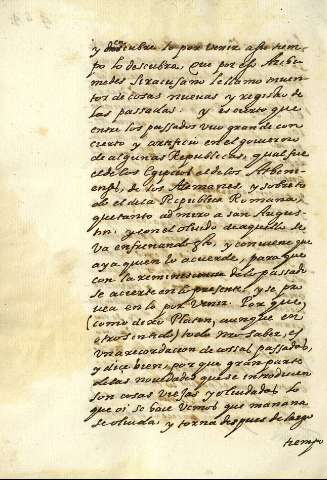 y descubre lo por venir a su tiem-
po lo descubra, Que por esso Archi-
medes Siracusano le llamo inuen-
tor de cosas nueuas y registro de
las passadas. y es cierto que
entre los passados vuo grande con-
cierto y artificio en el gouierno
de algunas Republicas, qual fue
el de los Egipcios, el de los Athen-
ienses, de los Alemanes, y sobre to-
do el de la Republica Romana,
que tanto admiro a san Augus-
tin. y con el oluido de aquello se
va enseñando y conuiene que
aya quien lo acuerde, para que
con la reminiscencia de lo passado
se acierte en lo presente y se pro-
uea en lo por venir. Por que
(como dixo Platon, aunque con
otro sentido) todo nro saber, es
vna recordacion de cosas passadas,
y dice bien, por que gran parte
de las nouedades que se introducen
son cosas viejas y oluidadas, lo
que oi se hace vemos que mañana
se oluida y torna despues de largo
tiempo